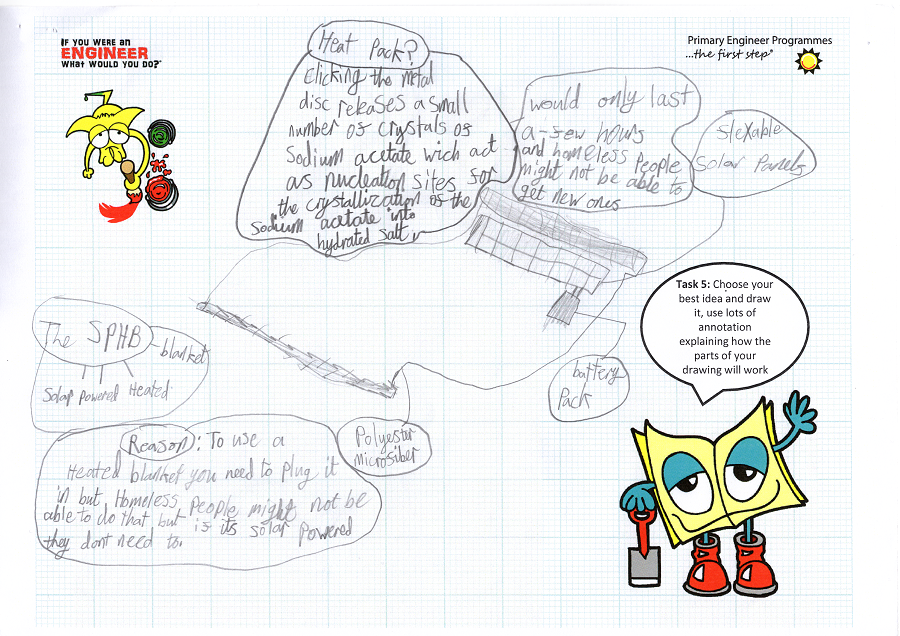 IF YOU WERE AN
ENGINEER
WHAT WOULD YOU DO?
Primary Engineer Programmes
...the first step®
Heat Pack?
Clicking the metal
disc releases a small
number of crystals of
Sodium acetate wich act
as nucleation sites for
the crystallization of the
Sodium acetate into
hydrated salt.
would only last
a few hours
and homeless people
might not be able to
get new ones
flexable
Solar Panels
Task 5: Choose your
best idea and draw
it, use lots of
annotation
explaining how the
parts of your
drawing will work
The SPHB
blanket
Solar Powered Heated
battery
Pack
Polyester
microfiber
Reason: To use a
Heated blanket you need to plug it
in but Homeless People might not be
able to do that, but if its solar Powered
they dont need to.